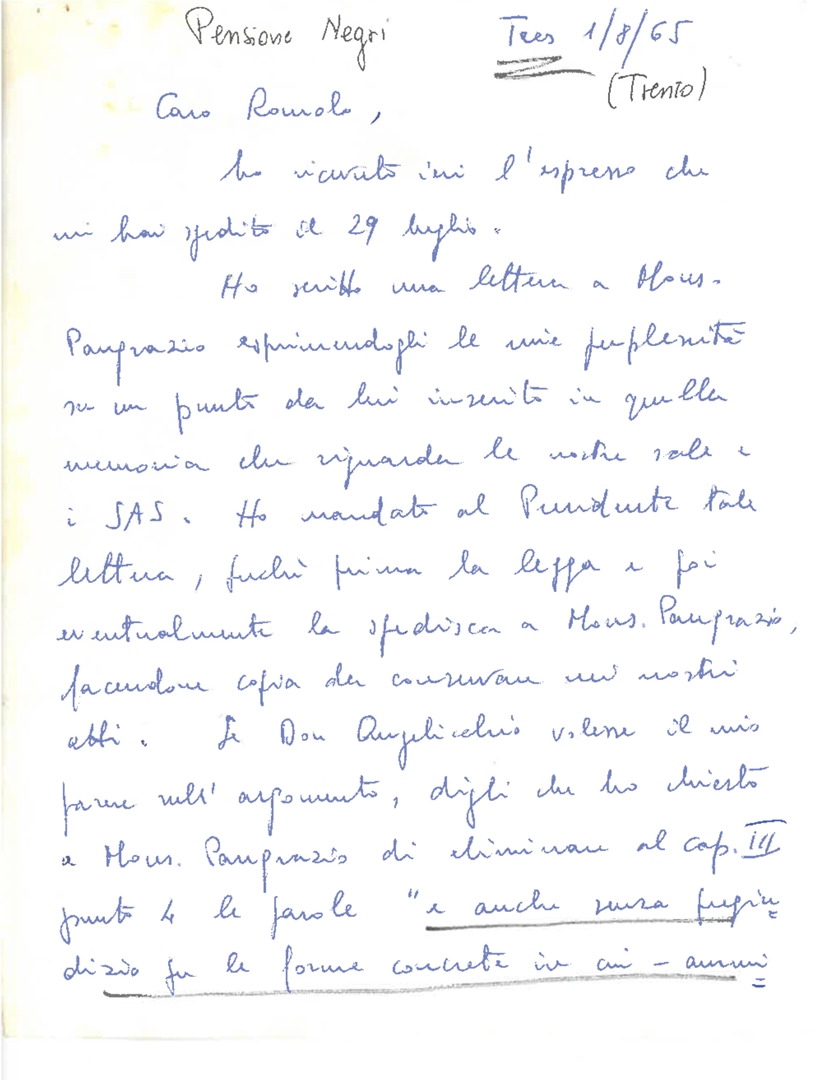 Pensione Negri Tres 1/8/65
(Trento)
Caro Romolo,
ho ricevuto ieri l'espresso che
mi hai spedito il 29 luglio.
Ho scritto una lettera a Mons.
Pangrazio esprimendogli le mie perplessità
su un punto da lui inserito in quella
memoria che riguarda le nostre sale e
i SAS. Ho mandato al Presidente tale
lettera, perché prima la legga e poi
eventualmente la spedisca a Mons. Pangrazio,
facendone copia da conservare nei nostri
atti. Se Don Angelicchio volesse il mio
parere sull'argomento, digli che ho chiesto
a Mons. Pangrazio di eliminare al cap. III
punto 4 le parole "e anche senza pregiu=
dizio per le forme concrete in cui - ammi
=